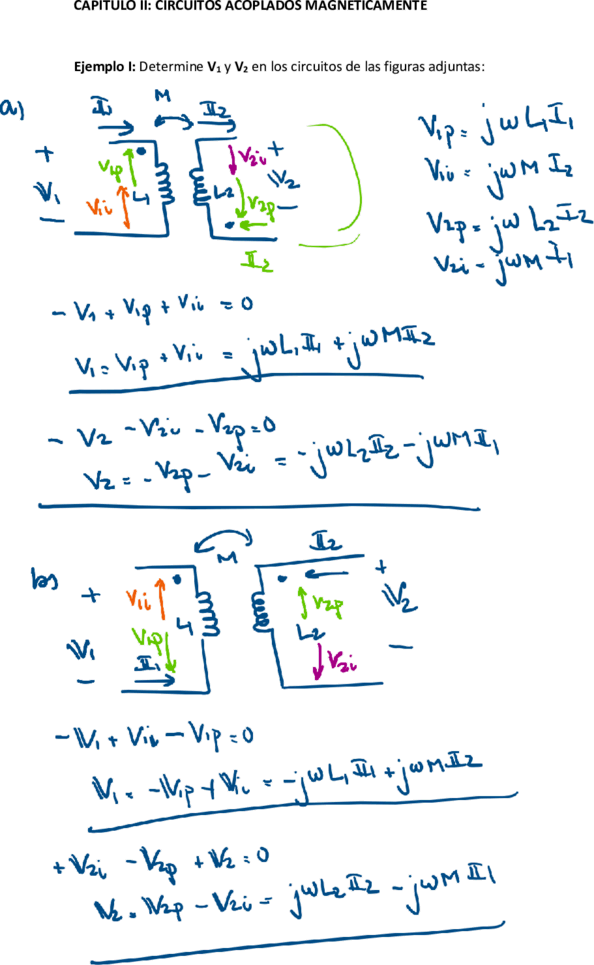 CAPÍTULO II: CIRCUITOS ACOPLADOS MAGNÉTICAMENTE
Ejemplo I: Determine V₁ y V₂ en los circuitos de las figuras adjuntas:
a)
I₁ M I₂
+ V1p L1 V1i V₁ −
V2i + L2 V₂ V2p −
I₂
V1p = jωL₁I₁
V1i = jωM I₂
V2p = jωL₂I₂
V2i = jωM I₁
− V₁ + V1p + V1i = 0
V₁ = V1p + V1i = jωL₁I₁ + jωMI₂
− V₂ − V2i − V2p = 0
V₂ = −V2p − V2i = −jωL₂I₂ − jωMI₁
b)
M I₂
+ V1i L1 V1p V₁ I₁ −
+ V2p V₂ L2 V2i −
−V₁ + V1i − V1p = 0
V₁ = −V1p + V1i = −jωL₁I₁ + jωMI₂
+ V2i − V2p + V₂ = 0
V₂ = V2p − V2i = jωL₂I₂ − jωMI₁